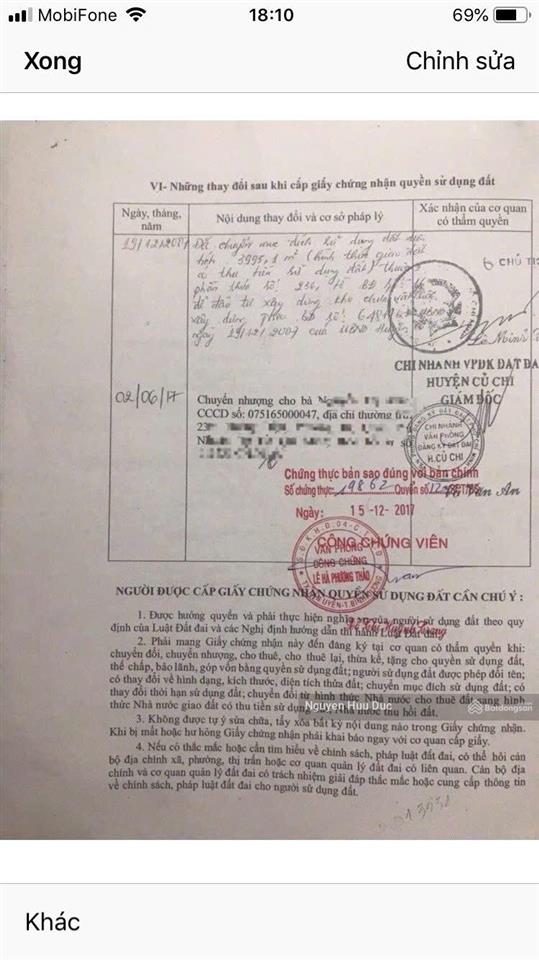 MobiFone 18:10 69%
Xong Chỉnh sửa
VI- Những thay đổi sau khi cấp giấy chứng nhận quyền sử dụng đất
Ngày, tháng, năm
Nội dung thay đổi và cơ sở pháp lý
Xác nhận của cơ quan có thẩm quyền
19/12/2007
Đã chuyển mục đích sử dụng đất diện
tích 3995,1 m² (hình thức giao đất
có thu tiền sử dụng đất) thuộc
phần thửa số: 236,
để đầu tư xây dựng
xây dựng
ngày 19/12/2007 của UBND Huyện
CHỦ TỊ
CHI NHÁNH VPĐK ĐẤT ĐA
HUYỆN CỦ CHI
GIÁM ĐỐC
02/06/17
Chuyển nhượng cho bà
CCCD số: 075165000047, địa chỉ thường
CHI NHÁNH
VĂN PHÒNG
ĐĂNG KÝ ĐẤT ĐAI
H.CỦ CHI
Văn An
Chứng thực bản sao đúng với bản chính
Số chứng thực: 19862 Quyển số
Ngày: 15-12-2017
CÔNG CHỨNG VIÊN
VĂN PHÒNG
CÔNG CHỨNG
LÊ HÀ PHƯƠNG THẢO
NGƯỜI ĐƯỢC CẤP GIẤY CHỨNG NHẬN QUYỀN SỬ DỤNG ĐẤT CẦN CHÚ Ý :
1. Được hưởng quyền và phải thực hiện nghĩa vụ của người sử dụng đất theo quy
định của Luật Đất đai và các Nghị định hướng dẫn thi hành Luật Đất đai.
2. Phải mang Giấy chứng nhận này đến đăng ký tại cơ quan có thẩm quyền khi:
chuyển đổi, chuyển nhượng, cho thuê, cho thuê lại, thừa kế, tặng cho quyền sử dụng đất,
thế chấp, bảo lãnh, góp vốn bằng quyền sử dụng đất; người sử dụng đất được phép đổi tên;
có thay đổi về hình dạng, kích thước, diện tích thửa đất; chuyển mục đích sử dụng đất; có
thay đổi thời hạn sử dụng đất; chuyển đổi từ hình thức Nhà nước cho thuê đất sang hình
thức Nhà nước giao đất có thu tiền sử dụng đất; Nhà nước thu hồi đất.
Nguyen Huu Duc
Batdongsan
3. Không được tự ý sửa chữa, tẩy xóa bất kỳ nội dung nào trong Giấy chứng nhận.
Khi bị mất hoặc hư hỏng Giấy chứng nhận phải khai báo ngay với cơ quan cấp giấy.
4. Nếu có thắc mắc hoặc cần tìm hiểu về chính sách, pháp luật đất đai, có thể hỏi cán
bộ địa chính xã, phường, thị trấn hoặc cơ quan quản lý đất đai có liên quan. Cán bộ địa
chính và cơ quan quản lý đất đai có trách nhiệm giải đáp thắc mắc hoặc cung cấp thông tin
về chính sách, pháp luật đất đai cho người sử dụng đất.
Khác